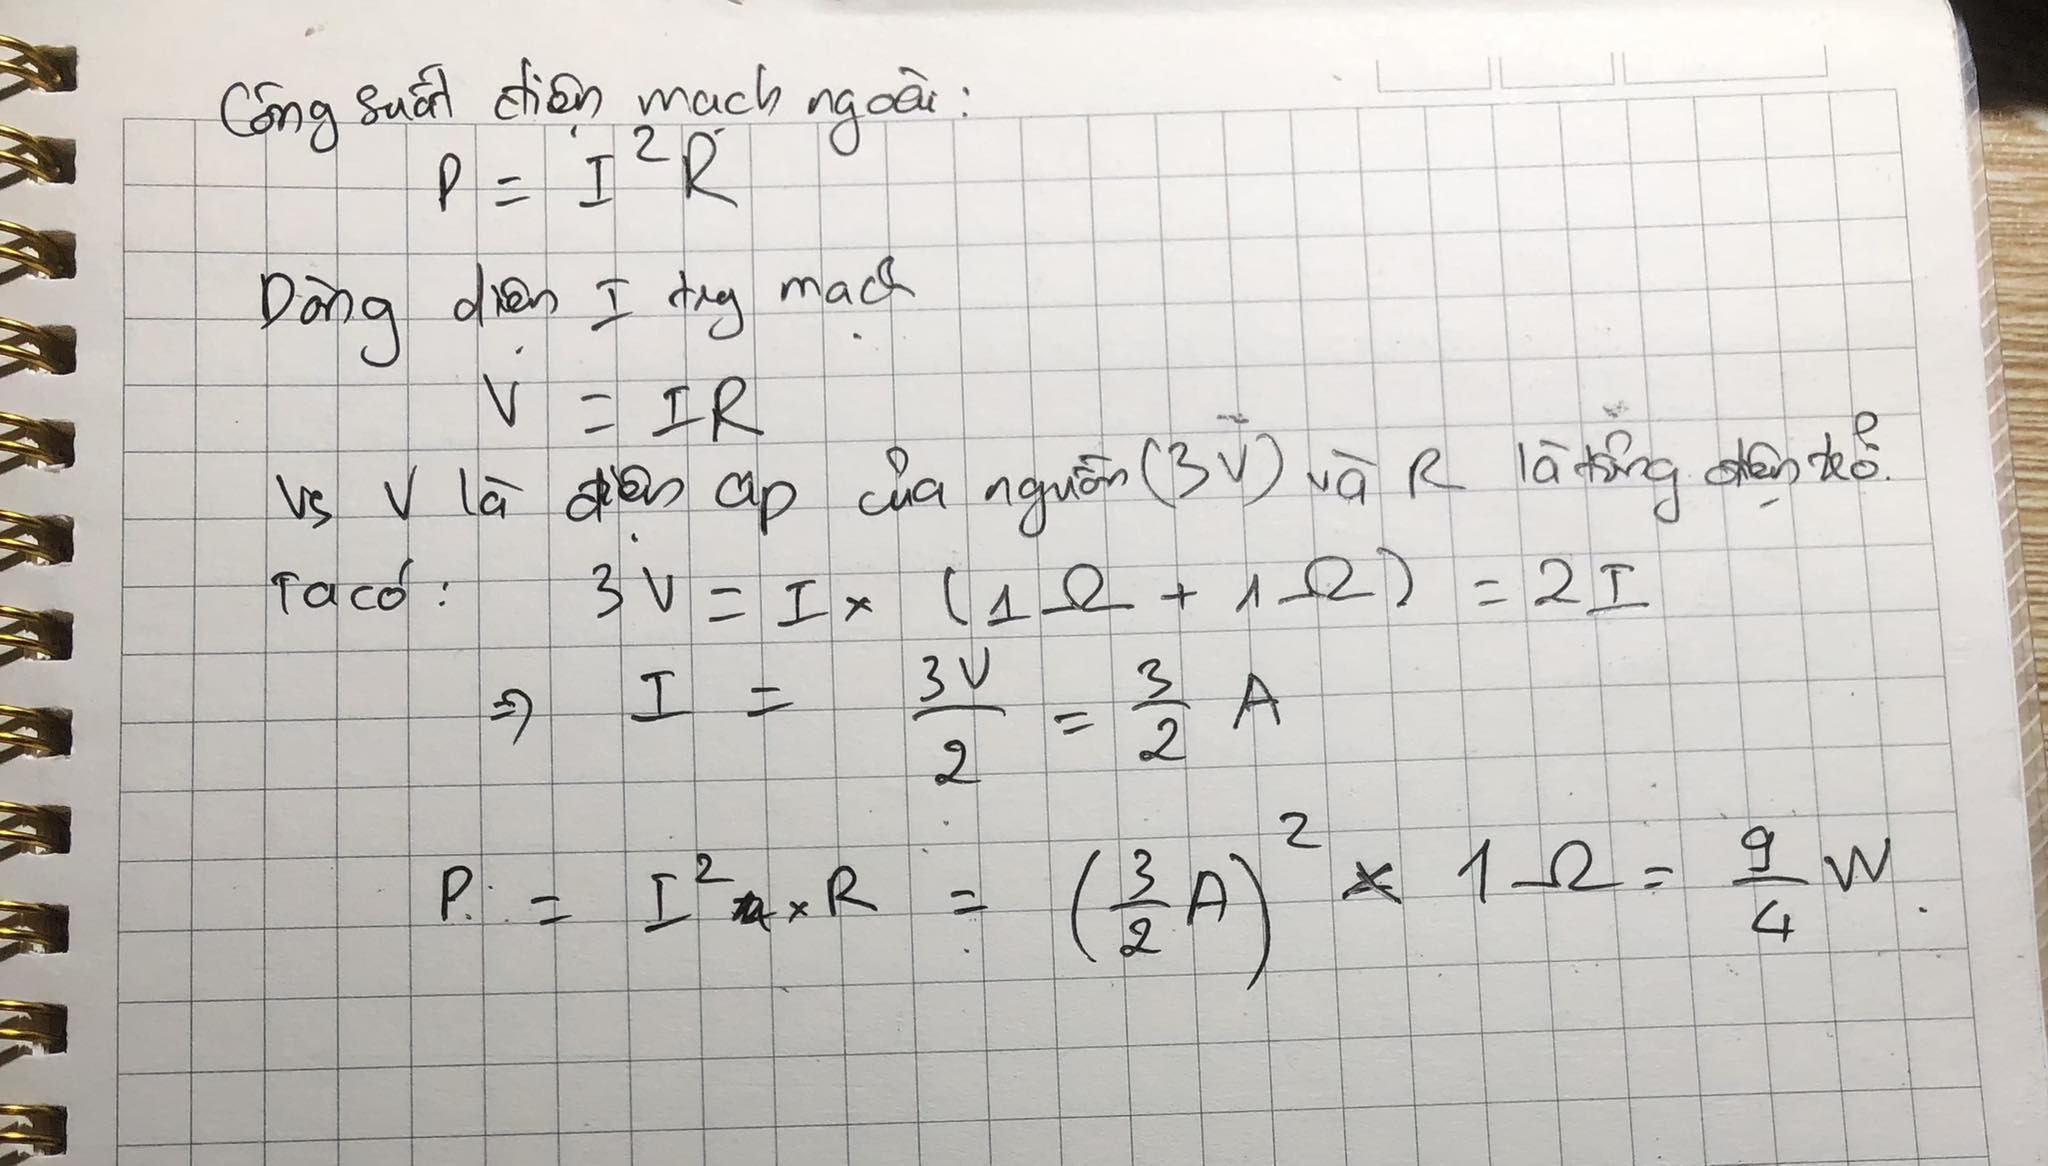 Công suất điện mạch ngoài:
P = I²R
Dòng điện I trg mạch
V = IR
Vs V là điện áp của nguồn (3V) và R là tổng điện trở.
Ta có: 3V = I × (1Ω + 1Ω) = 2I
⇒ I = 3V/2 = 3/2 A
P = I² × R = (3/2 A)² × 1Ω = 9/4 W.